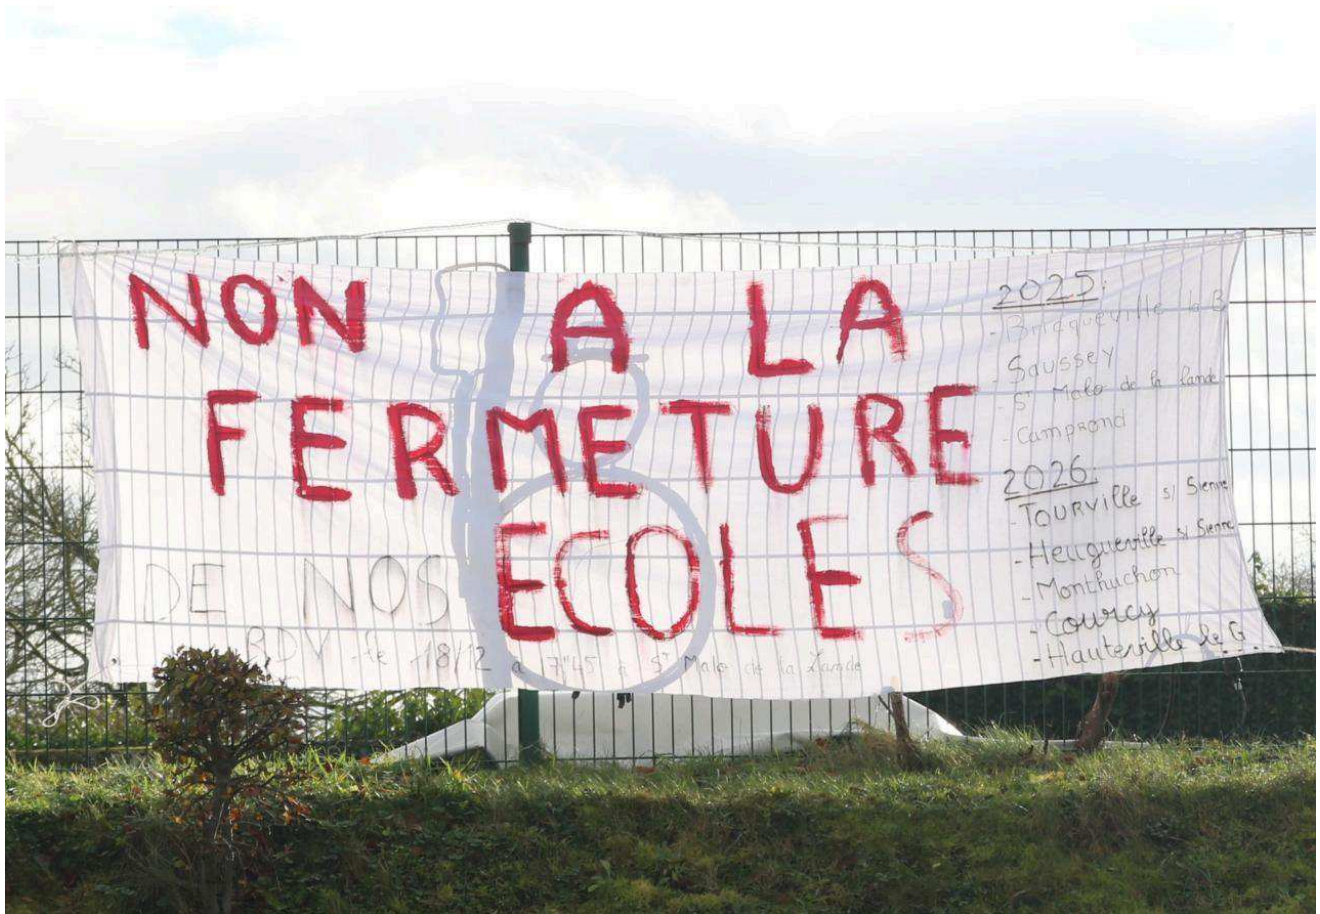 NON A LA
FERMETURE
DE NOS ECOLES
RDV le 18/12 a 7h45 à St Malo de la Lande
2025:
- Bricqueville la B
- Saussey
- St Malo de la lande
- Camprond
2026:
- TOURVILLE s/ Sienne
- Heugueville s/ Sienne
- Monthuchon
- Courcy
- Hauteville le G.